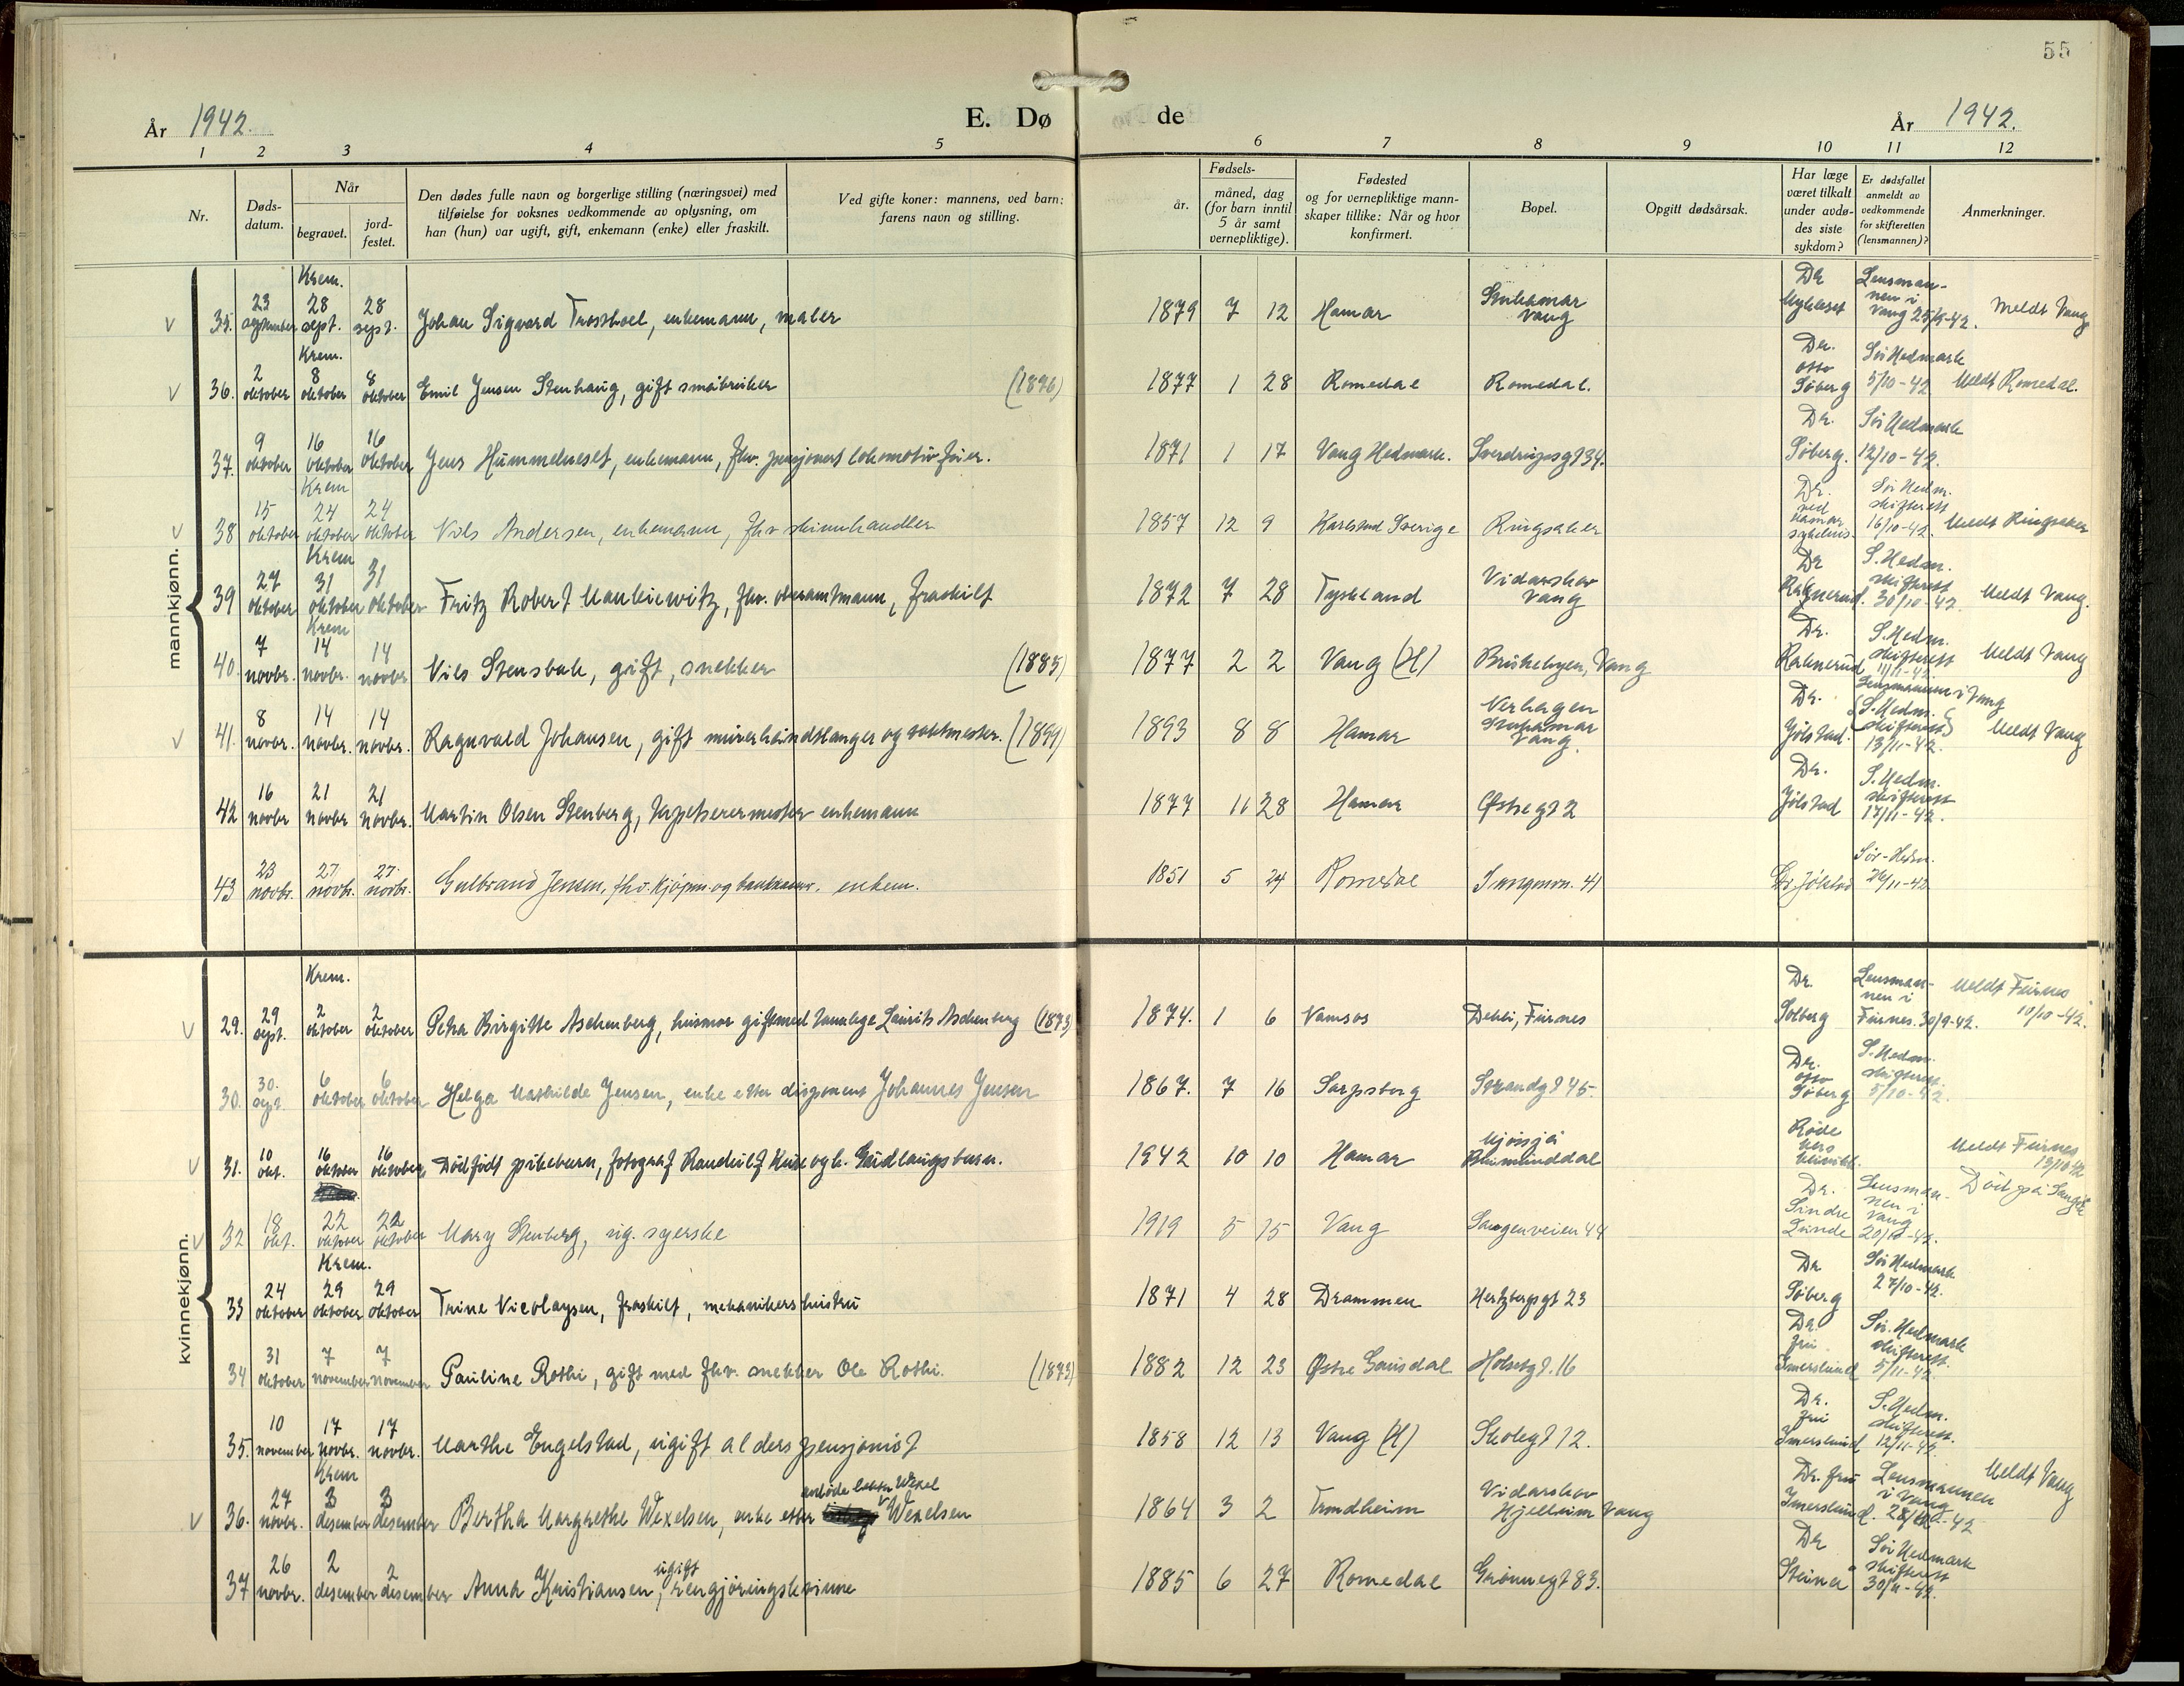 55
År 1942.
E. Dø de
År 1942.
1 2 3 4 5 6 7 8 9 10 11 12
Nr.
Døds-
datum.
Når
begravet.
jord-
festet.
Den dødes fulle navn og borgerlige stilling (næringsvei) med
tilføielse for voksnes vedkommende av oplysning, om
han (hun) var ugift, gift, enkemann (enke) eller fraskilt.
Ved gifte koner: mannens, ved barn:
farens navn og stilling.
Fødsels-
år.
måned, dag
(for barn inntil
5 år samt
vernepliktige).
Fødested
og for vernepliktige mann-
skaper tillike: Når og hvor
konfirmert.
Bopel.
Opgitt dødsårsak.
Har læge
været tilkalt
under avdø-
des siste
sykdom?
Er dødsfallet
anmeldt av
vedkommende
for skifteretten
(lensmannen)?
Anmerkninger.
mannkjønn.
Krem. Dr Lensman-
23 28 28 Storhamar nen i
V 35. september sept. sept. Johan Sigvard , enkemann, maler 1879 7 12 Hamar Vang Vang 25/9-42. Meldt Vang
Krem. Dr. Sør Hedmark
2 8 8 Otto
V 36. oktober oktober oktober Emil Jensen Stenhaug, gift småbruker (1876) 1877 1 28 Romedal Romedal. Søberg 5/10-42 Meldt Romedal.
9 16 16 Dr. Sør Hedmark
37. oktober oktober oktober Jens Hummelneset, enkemann, fhv. pensjonert lokomotivfører. 1871 1 17 Vang Hedmark. Sverdrupsgt 34. Søberg. 12/10-42.
Krem Dr. Sør Hedm.
15 24 24 ved Hamar skifterett
V 38 oktober oktober oktober Nils Andersen, enkemann, fhv skinnhandler 1857 12 9 Karlstad Sverige Ringsaker sykehus. 16/10-42. Meldt Ringsaker
Krem Dr S. Hedm.
27 31 31 Vidarshov skifterett
39 oktober oktober oktober Fritz Robert Mankiewitz, fhv. oberamtmann, fraskilt 1872 7 28 Tyskland Vang Raknerud. 30/10-42. Meldt Vang.
Krem Dr. S. Hedm.
7 14 14 skifterett
40. novbr. novbr. novbr Nils Stensbak, gift, snekker (1885) 1877 2 2 Vang (H) Briskebyen, Vang Raknerud 11/11-42. Meldt Vang
8 14 14 Nerhagen Dr. Lensmannen i Vang
Storhamar (S. Hedm. skifterett)
V 41. novbr. novbr. novbr. Ragnvald Johansen, gift murerhåndtlanger og vaktmester. (1899) 1893 8 8 Hamar Vang. Jølstad. 13/11-42. Meldt Vang
16 21 21 Dr. S. Hedm.
skifterett
42 novbr novbr novbr. Martin Olsen Stenberg, tapetserermester enkemann 1877 11 28 Hamar Østregt 2 Jølstad 17/11-42.
23 27 27. Sør-Hedm.
43 novbr. novbr. novbr. Gulbrand Jensen, fhv. kjøpm. og bankkasser. enkem. 1851 5 24 Romedal Sangenvn. 41 Dr Jølstad 26/11-42
kvinnekjønn.
Krem. Dr. Lensman- Meldt Furnes
29 2 2 nen i 10/10-42.
V 29. sept. oktober oktober Petra Birgitte Aschenberg, husmor gift med tannlege Laurits Aschenberg (1873) 1874. 1 6 Namsos Dehli, Furnes Solberg Furnes. 30/9-42.
30. 6 6 Dr. Otto S. Hedm. skifterett.
30. sept. oktober oktober Helga Mathilde Jensen, enke etter disponent Johannes Jensen 1867. 7 16 Sarpsborg Strandgt 45. Søberg 5/10-42.
10 16 16 Mjøssjå Røde Kors Meldt Furnes 13/10 42
V 31. okt. oktober oktober Dødfødt pikebarn, fotograf Randulf Kuse og h. Gudlaugs barn. 1942 10 10 Hamar Brumunddal klinikk.
18 22 22 Dr. Sindre Lensman- nen i Vang Død på Sanger
V 32 okt. oktober oktober Mary Stenberg, ug. syerske 1919 5 15 Vang Sangenveien 44 Lunde 20/10-42.
Krem. Dr Sør Hedmark
24 29 29
33 oktober oktober oktober Trine Nicolaysen, fraskilt, mekanikers hustru 1871 4 28 Drammen Hertzbergsgt 23 Søberg 27/10-42.
31 7 7 Dr. fru Sør. Hedmark skifterett.
34 oktober november november Pauline Rothi, gift med fhv. snekker Ole Rothi. (1873) 1882 12 23 Østre Gausdal Holsetgt. 16 Imerslund 5/11-42.
10 17 17 Dr. fru S. Hedm. skifterett.
35. november novbr. novbr. Marthe Engelstad, ugift alderspensjonist 1858 12 13 Vang (H) Skolegt 12. Imerslund 12/11-42.
Krem Wexel Dr. fru Lensmannen Meldt Vang
27 3 3 Vidarshov i Vang
V 36. novbr. desember desember Bertha Margrethe Wexelsen, enke etter Wexelsen 1864 3 2 Trondheim Hjelleum Vang Imerslund. 28/12-42
26 2 2 ugift Dr Sør Hedmark skifterett
37 novbr. desember desember Anna Kristiansen, rengjøringskvinne 1885 6 27 Romedal Grønnegt 83. Steinar 30/11-42.